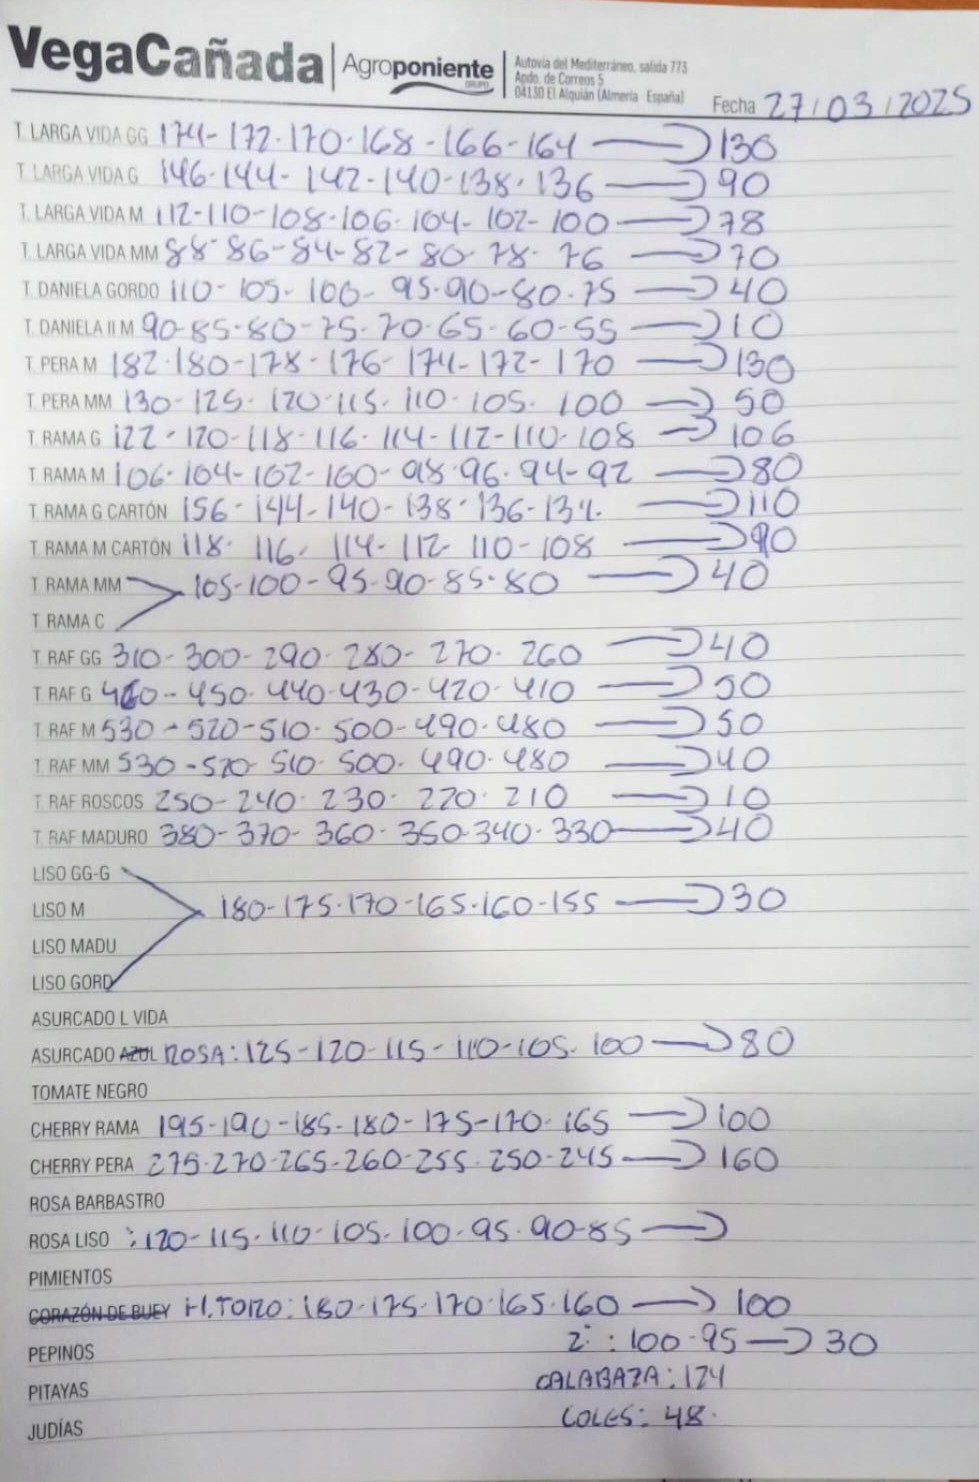 VegaCañada | Agroponiente GRUPO | Autovía del Mediterráneo, salida 773
Apdo. de Correos 5
04130 El Alquián (Almería España)
Fecha 27/03/2025
T. LARGA VIDA GG 174-172-170-168-166-164 → 130
T. LARGA VIDA G 146-144-142-140-138-136 → 90
T. LARGA VIDA M 112-110-108-106-104-102-100 → 78
T. LARGA VIDA MM 88-86-84-82-80-78-76 → 70
T. DANIELA GORDO 110-105-100-95-90-80-75 → 40
T. DANIELA II M 90-85-80-75-70-65-60-55 → 10
T. PERA M 182-180-178-176-174-172-170 → 130
T. PERA MM 130-125-120-115-110-105-100 → 50
T. RAMA G 122-120-118-116-114-112-110-108 → 106
T. RAMA M 106-104-102-100-98-96-94-92 → 80
T. RAMA G CARTÓN 156-144-140-138-136-134 → 110
T. RAMA M CARTÓN 118-116-114-112-110-108 → 90
T. RAMA MM 105-100-95-90-85-80 → 40
T. RAMA C
T. RAF GG 310-300-290-280-270-260 → 40
T. RAF G 460-450-440-430-420-410 → 50
T. RAF M 530-520-510-500-490-480 → 50
T. RAF MM 530-520-510-500-490-480 → 40
T. RAF ROSCOS 250-240-230-220-210 → 10
T. RAF MADURO 380-370-360-350-340-330 → 40
LISO GG-G
LISO M 180-175-170-165-160-155 → 30
LISO MADU
LISO GORD
ASURCADO L VIDA
ASURCADO AZUL ROSA: 125-120-115-110-105-100 → 80
TOMATE NEGRO
CHERRY RAMA 195-190-185-180-175-170-165 → 100
CHERRY PERA 275-270-265-260-255-250-245 → 160
ROSA BARBASTRO
ROSA LISO : 120-115-110-105-100-95-90-85 →
PIMIENTOS
CORAZÓN DE BUEY H.TORO: 180-175-170-165-160 → 100
PEPINOS 2ª: 100-95 → 30
PITAYAS CALABAZA: 124
JUDÍAS COLES: 48.